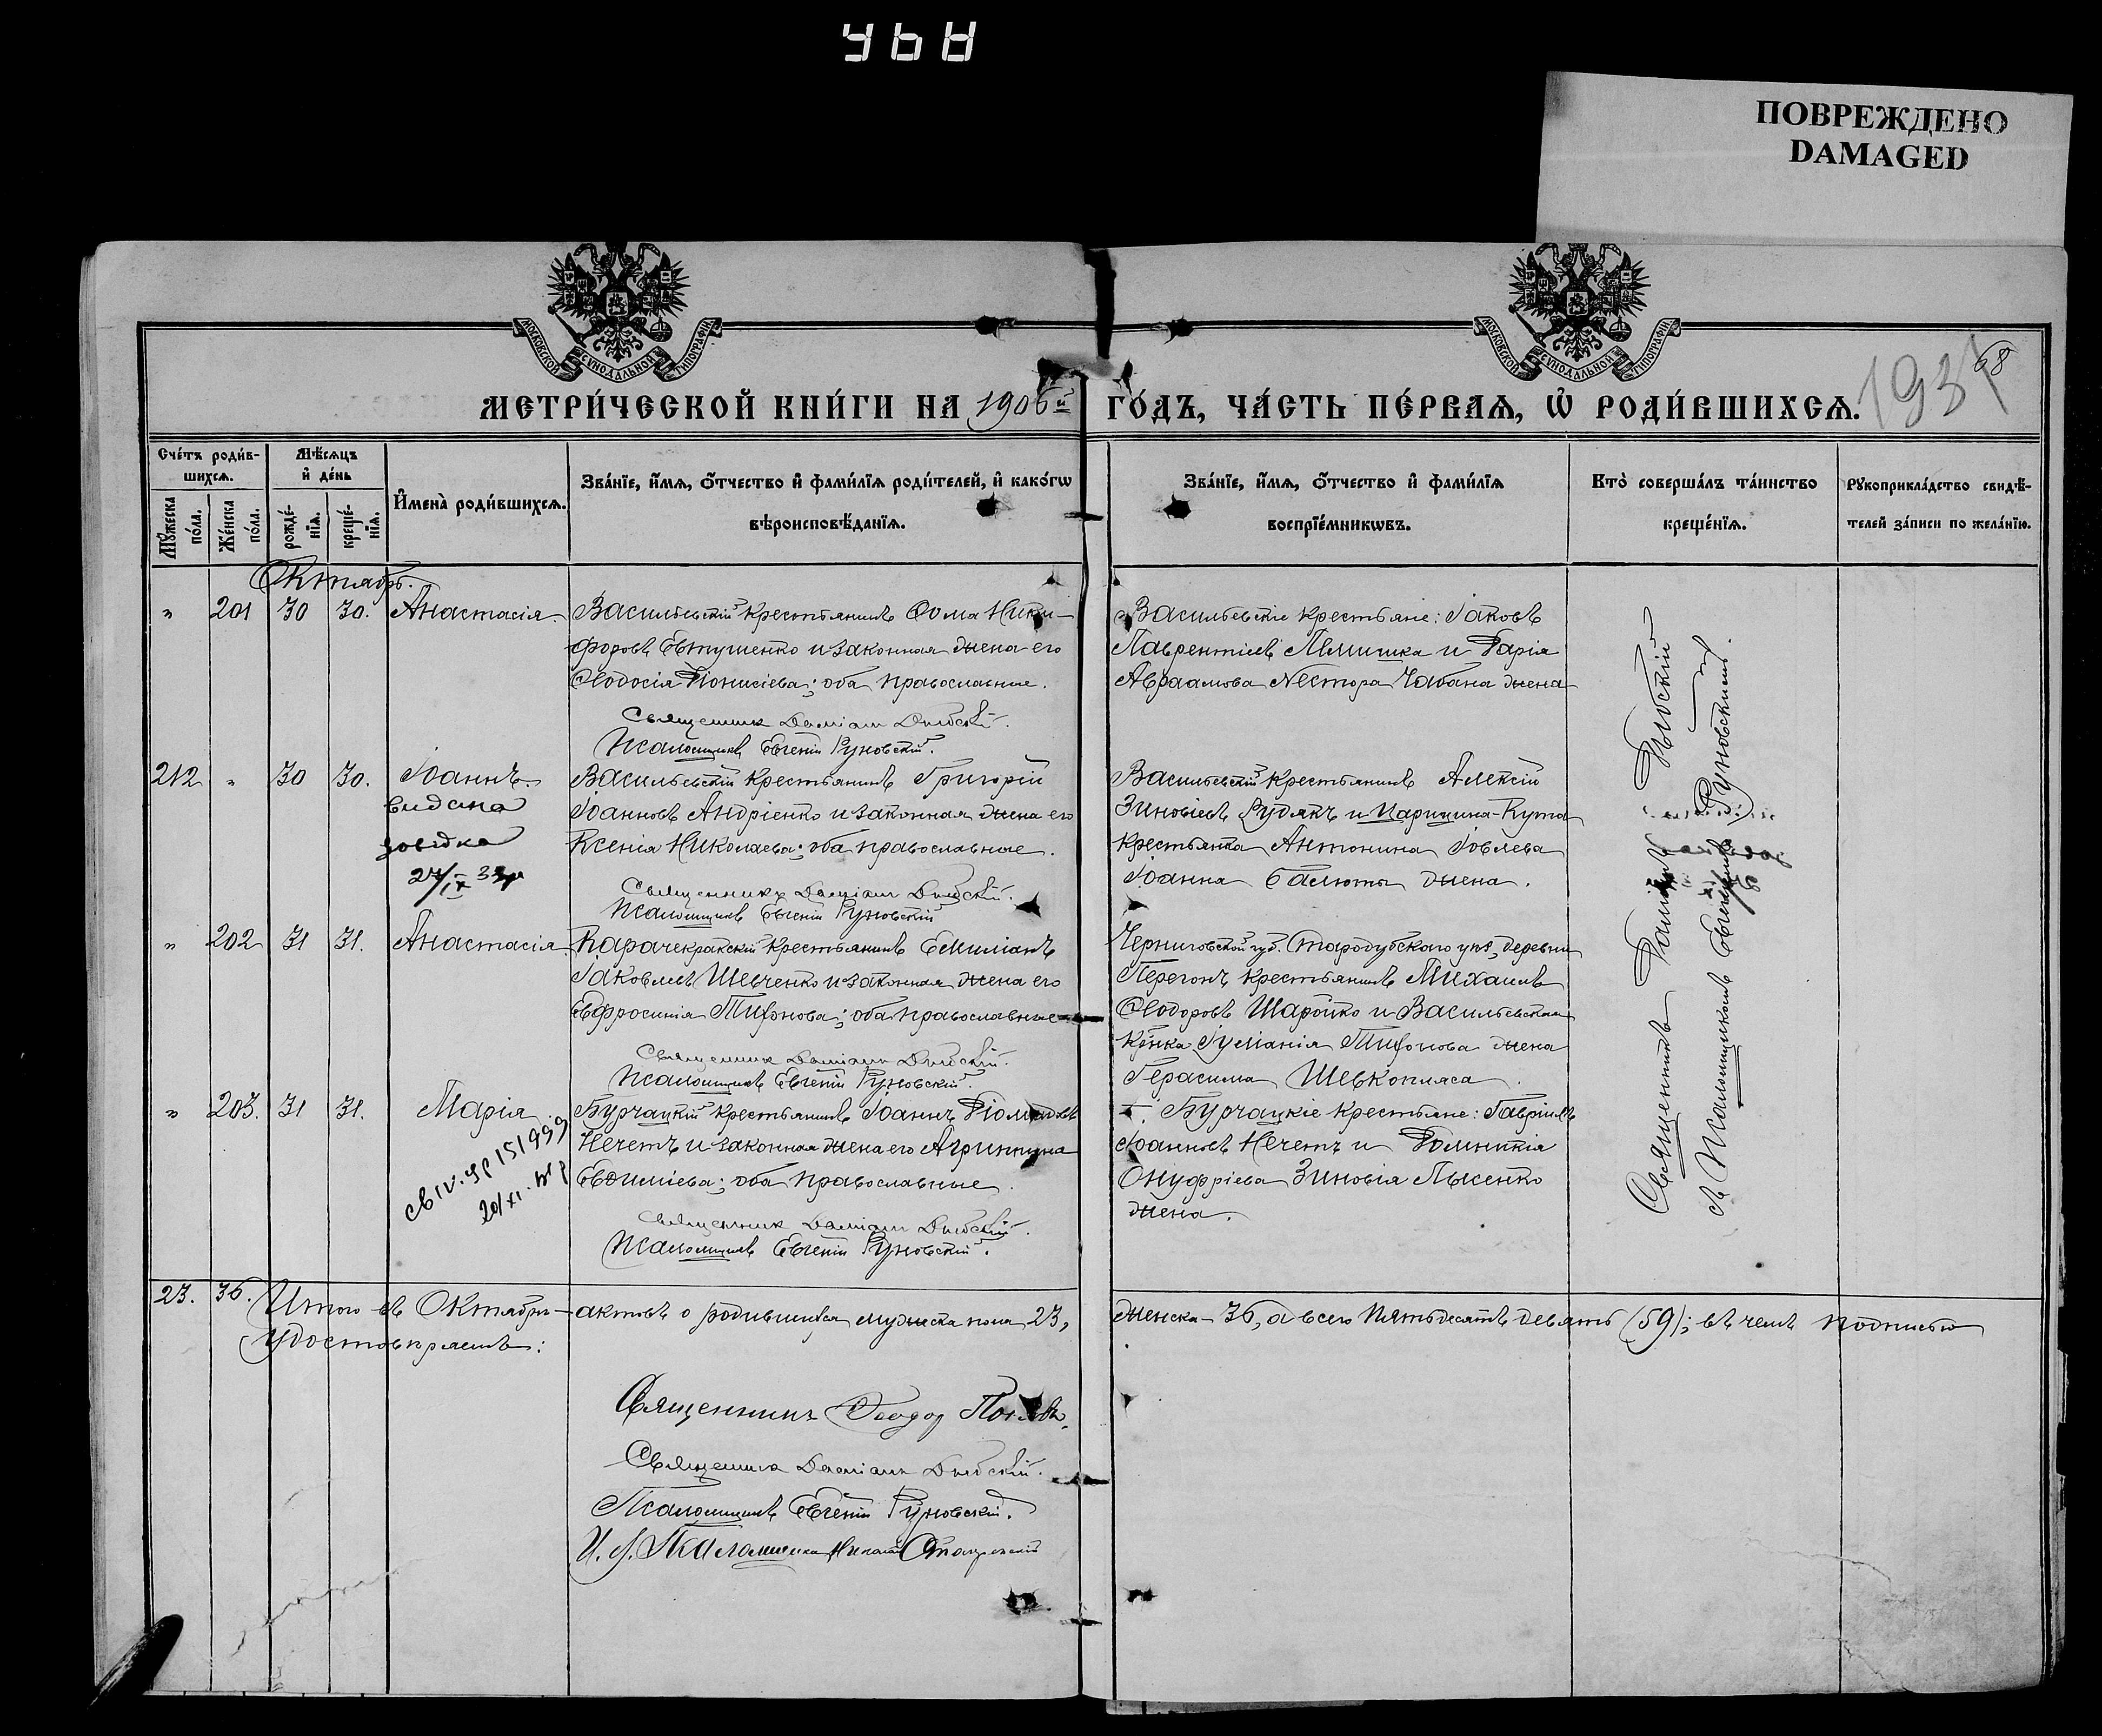 ПОВРЕЖДЕНО
DAMAGED
МОСКОВСКОЙ СѴНОДАЛЬНОЙ ТИПОГРАФІИ
МОСКОВСКОЙ СѴНОДАЛЬНОЙ ТИПОГРАФІИ
68
193
МЕТРИ́ЧЕСКОЙ КНИ́ГИ НА 1906й ГО́ДЪ, ЧА́СТЬ ПЕ́РВАѦ, Ѡ҆ РОДИ́ВШИХСѦ.
Сче́тъ роди́в-
шихсѧ.
Мѣ́сѧцъ
и҆ де́нь
Мꙋ́жеска
по́ла.
Же́нска
по́ла.
рожде́-
нїѧ.
креще́-
нїѧ.
И҆мена̀ роди́вшихсѧ.
Зва́нїе, и҆́мѧ, ѻ҆́тчество и҆ фами́лїѧ роди́телей, и҆ како́гѡ
вѣроисповѣ́данїѧ.
Зва́нїе, и҆́мѧ, ѻ҆́тчество и҆ фами́лїѧ
воспрїе́мникѡвъ.
Кто̀ соверша́лъ та́инство
креще́нїѧ.
Рꙋкоприкла́дство свидѣ́-
телей за́писи по жела́нїю.
Октябрь.
" 201 30 30. Анастасія
Васильевскій крестьянинъ Ѳома Ники-
форовъ Евтушенко и законная жена его
Ѳеодосія Діонисіева; оба православные.
Священникъ Даміанъ Дыбскій.
Псаломщикъ Евгеній Руновскій.
Васильевскіе крестьяне: Іаковъ
Лаврентіевъ Лемишка и Дарія
Авраамова Нестора Чабана жена
212 " 30 30. Іоаннъ.
видана
довідка
27/IX 33р
Васильевскій крестьянинъ Григорій
Іоанновъ Андріенко и законная жена его
Ксенія Николаева; оба православные.
Священникъ Даміанъ Дыбскій.
Псаломщикъ Евгеній Руновскій
Васильевскій крестьянинъ Алексій
Зиновіевъ Рудякъ и Царицина-Кута
крестьянка Антонина Іовлева
Іоанна жена.
" 202 31 31. Анастасія.
Карачекракскій крестьянинъ Емиліанъ
Іаковлевъ Шевченко и законная жена его
Евфросинія Тифонова; оба православные
Священникъ Даміанъ Дыбскій.
Псаломщикъ Евгеній Руновскій.
Черниговской губ. Стародубскаго уѣз., деревни
Перегонъ крестьянинъ Михаилъ
Ѳеодоровъ Шаройко и Васильевская
кр-нка Іуліанія Тифонова жена
Герасима Шевкопляса.
" 203. 31 31. Марія
20/XI
Бурчацкій крестьянинъ Іоаннъ Діомидовъ
Нечетъ и законная жена его Агриппина
Евѳиміева; оба православные.
Священникъ Даміанъ Дыбскій.
Псаломщикъ Евгеній Руновскій.
Бурчацкіе крестьяне: Гавріилъ
Іоанновъ Нечетъ и Домникія
Онуфріева Зиновія Лысенко
жена.
Священникъ Даміанъ Дыбскій
съ Псаломщикомъ Евгеніемъ Руновскимъ.
23. 36. Итого въ Октябрѣ актовъ о родившихся мужеска пола 23, женска 36, а всего пятьдесятъ девять (59); въ чемъ подписью
удостовѣряемъ:
Священникъ Ѳеодор Поповъ.
Священникъ Даміанъ Дыбскій.
Псаломщикъ Евгеній Руновскій.
И. д. Псаломщика Николай